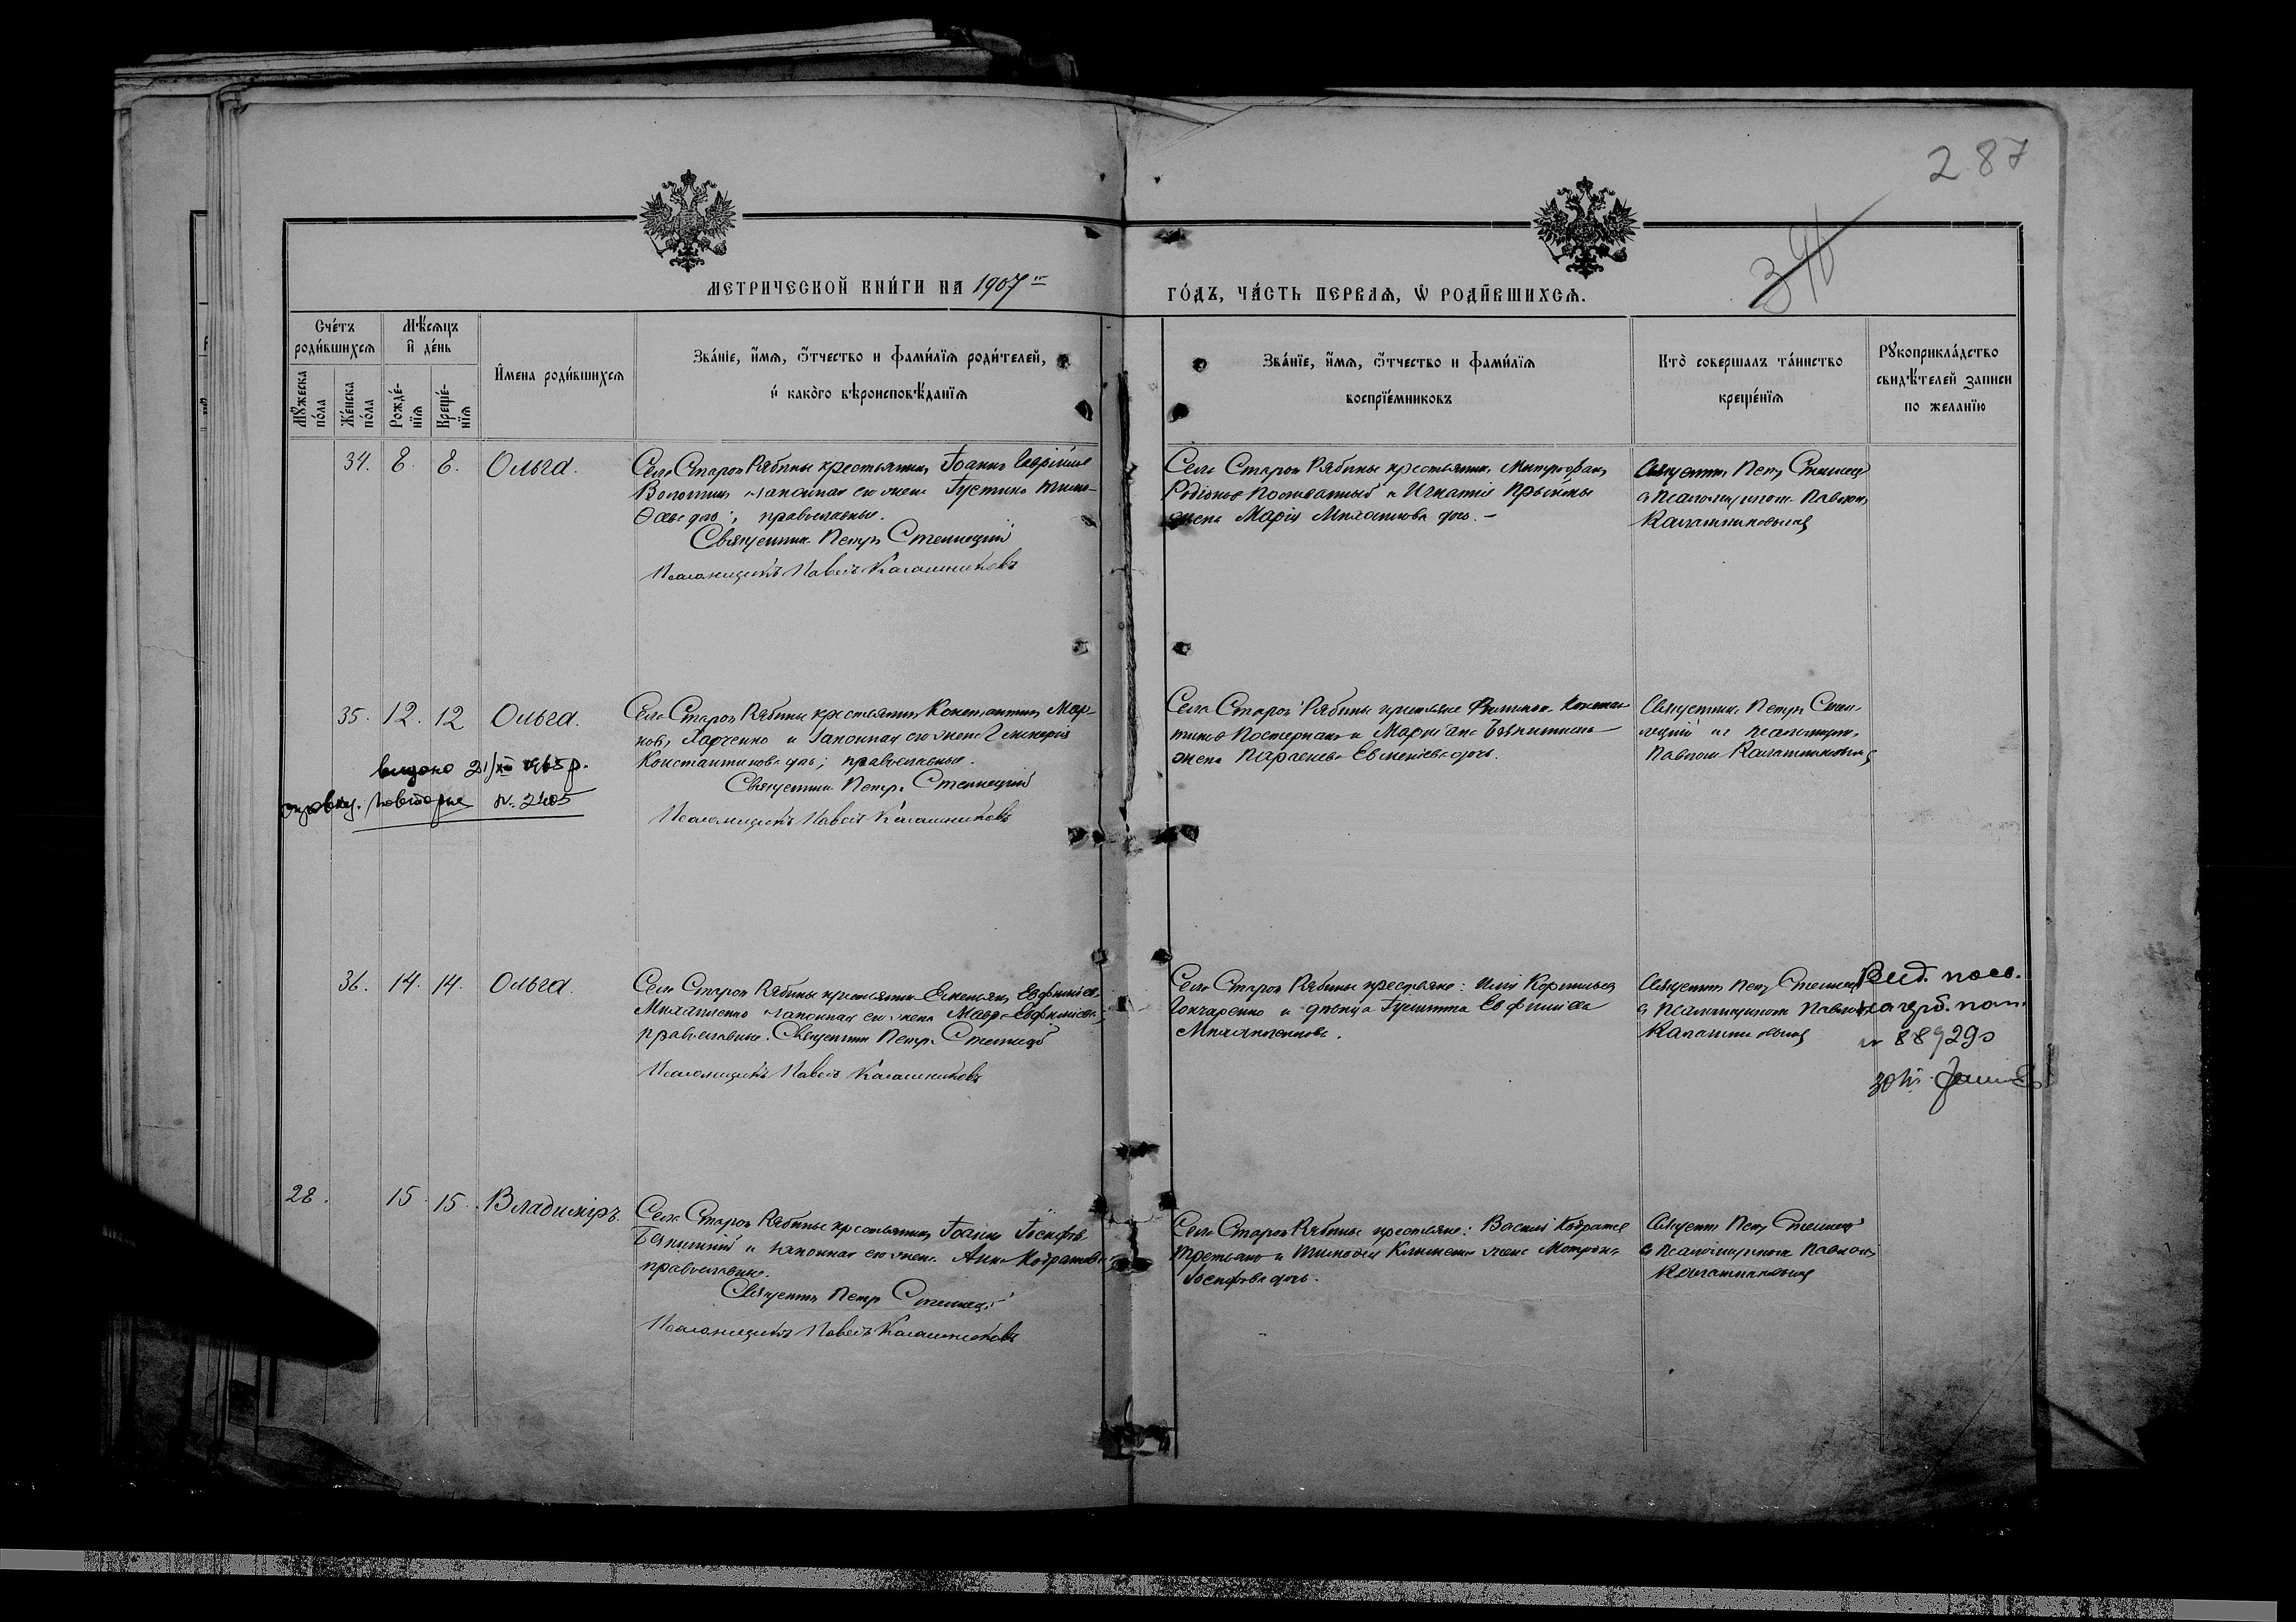 287
МЕТРИЧЕСКОЙ КНИГИ НА 1907
ГОДЪ, ЧАСТЬ ПЕРВАЯ, Ѡ РОДИВШИХСЯ.
Счетъ родившихся
Мужеска пола
Женска пола
Мѣсяцъ и день
Рожденія
Крещенія
Имена родившихся
Званіе, имя, отчество и фамилія родителей,
и какого вѣроисповѣданія
Званіе, имя, отчество и фамилія
воспріемниковъ
Кто совершалъ таинство
крещенія
Рукоприкладство
свидѣтелей записи
по желанію
34. 8. 8. Ольга.
Села Старой Рябины крестьянинъ Іоаннъ
законная его жена Іустина
православные.
Священникъ Петръ Стеллецкій
Псаломщикъ Павелъ Калашниковъ
Села Старой Рябины крестьянинъ Митрофанъ
Родіоновъ и Игнатія
жена Марія Михаилова дочь. –
Священникъ Петръ Стеллецкій
съ псаломщикомъ Павломъ
Калашниковымъ
35. 12. 12 Ольга.
Села Старой Рябины крестьянинъ Константинъ Мар-
ковъ Харченко и законная его жена Гликерія
Константинова дочь; православные.
Священникъ Петръ Стеллецкій
Псаломщикъ Павелъ Калашниковъ
видано 21/XII 1965 р.
повторне N. 2405
Села Старой Рябины крестьяне Филиппъ Констан-
тиновъ и
жена Параскева Евменіева дочь.
Священникъ Петръ Стел-
лецкій съ псаломщик.
Павломъ Калашниковымъ
36. 14. 14. Ольга.
Села Старой Рябины крестьянинъ Емельянъ Евфиміевъ
Михайленко законная его жена Мавра Евфиміева;
православные. Священникъ Петръ Стеллецкій
Псаломщикъ Павелъ Калашниковъ
Села Старой Рябины крестьяне: Илія Корнильевъ
Гончаренко и дѣвица Іустина Евфиміева
Михайленкова.
Священникъ Петръ Стеллецкій
съ псаломщикомъ Павломъ
Калашниковымъ
889290
28. 15. 15. Владиміръ.
Села Старой Рябины крестьянинъ Іоаннъ Іосифовъ
и законная его жена Анна Кодратова
православные.
Священникъ Петръ Стеллецкій
Псаломщикъ Павелъ Калашниковъ
Села Старой Рябины крестьяне: Василій Кодратовъ
Третьяко и Тимофея жена Матрона
Іосифова дочь.
Священникъ Петръ Стеллецкій
съ псаломщикомъ Павломъ
Калашниковымъ